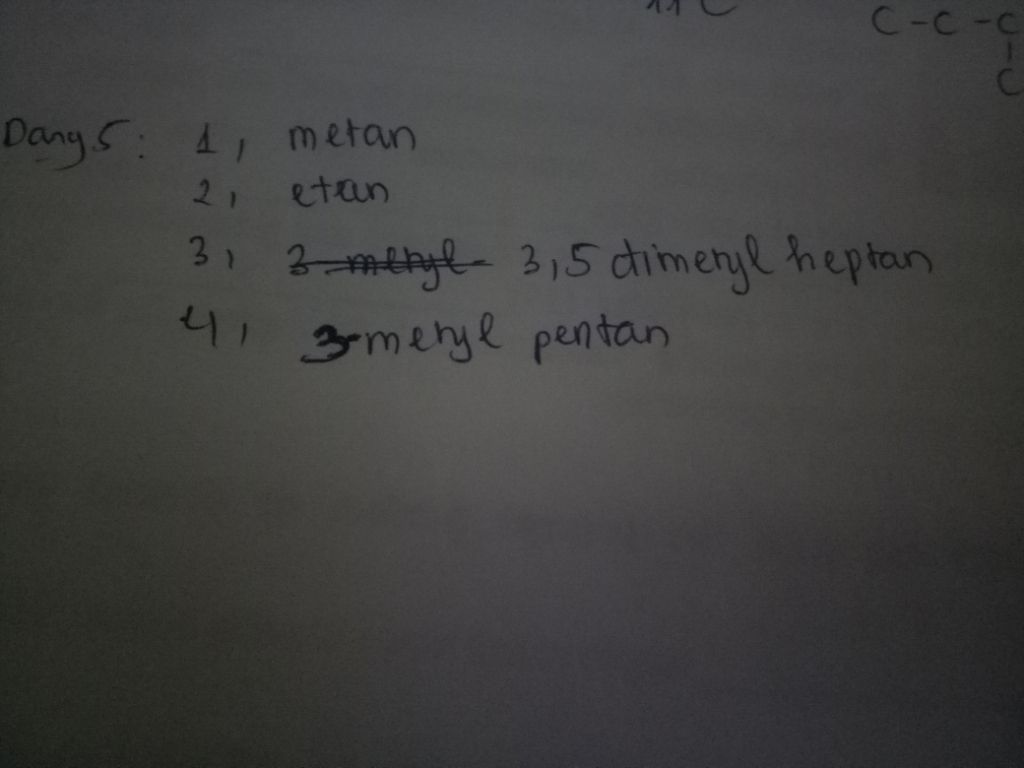 C - C - C
C
Dạng 5: 1, metan
2, etan
3, 3-metyl- 3,5 dimetyl heptan
4, 3-metyl pentan